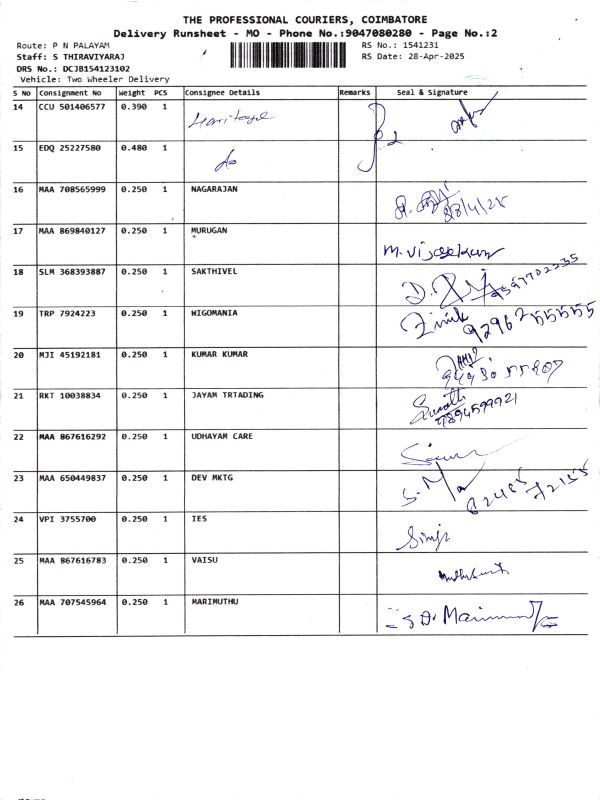 THE PROFESSIONAL COURIERS, COIMBATORE
Delivery Runsheet - MO - Phone No.:9047080280 - Page No.:2
Route: P N PALAYAM
RS No.: 1541231
Staff: S THIRAVIYARAJ
RS Date: 28-Apr-2025
DRS No.: DCJB154123102
Vehicle: Two Wheeler Delivery
S No Consignment No Weight PCS Consignee Details Remarks Seal & Signature
14 CCU 501406577 0.390 1
15 EDQ 25227580 0.480 1
16 MAA 708565999 0.250 1 NAGARAJAN
17 MAA 869840127 0.250 1 MURUGAN M. Vijayakumar
18 SLM 368393887 0.250 1 SAKTHIVEL
19 TRP 7924223 0.250 1 WIGOMANIA
20 MJI 45192181 0.250 1 KUMAR KUMAR
21 RKT 10038834 0.250 1 JAYAM TRTADING 9894599921
22 MAA 867616292 0.250 1 UDHAYAM CARE
23 MAA 650449837 0.250 1 DEV MKTG
24 VPI 3755700 0.250 1 IES
25 MAA 867616783 0.250 1 VAISU
26 MAA 707545964 0.250 1 MARIMUTHU